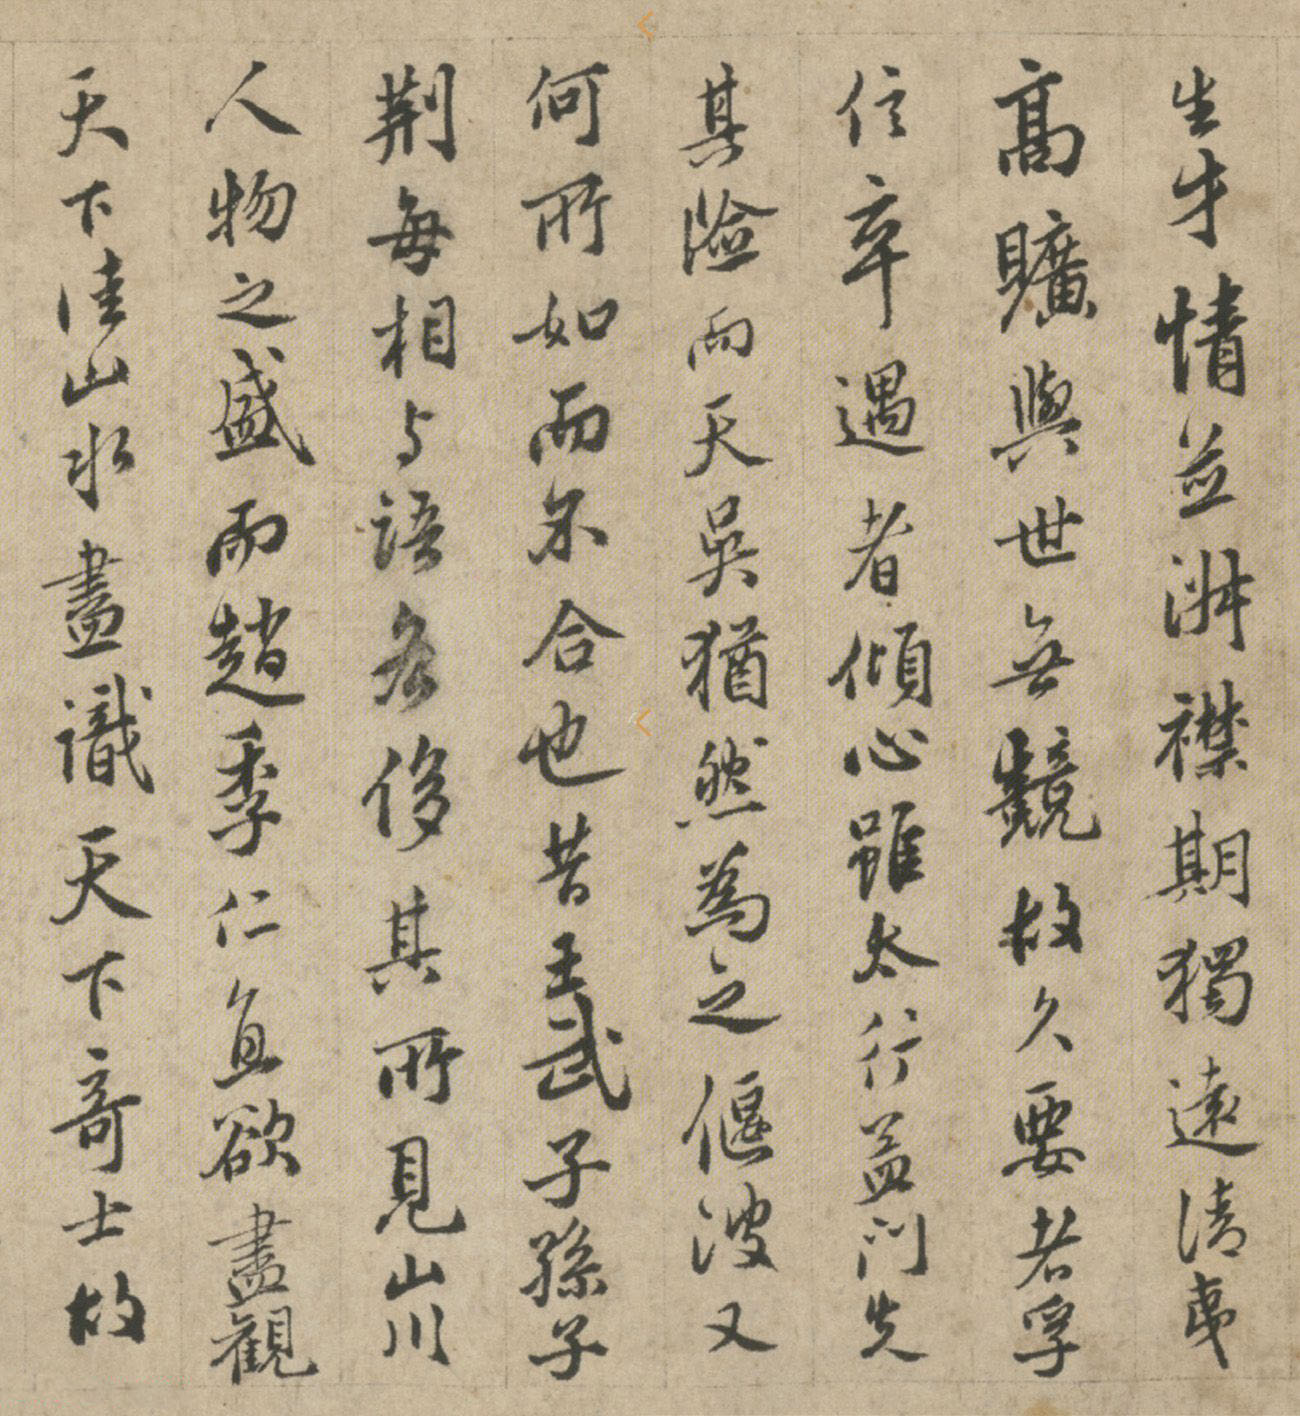 生才情並淋襟期獨遠清夷
高曠與世無競故久要者孚
信卒遇者傾心雖太行盖門先
其險而天吳猶然為之偃波又
何所如而不合也昔王武子孫子
荆每相与語各侈其所見山川
人物之盛而趙季仁直欲盡觀
天下佳山水盡識天下奇士故